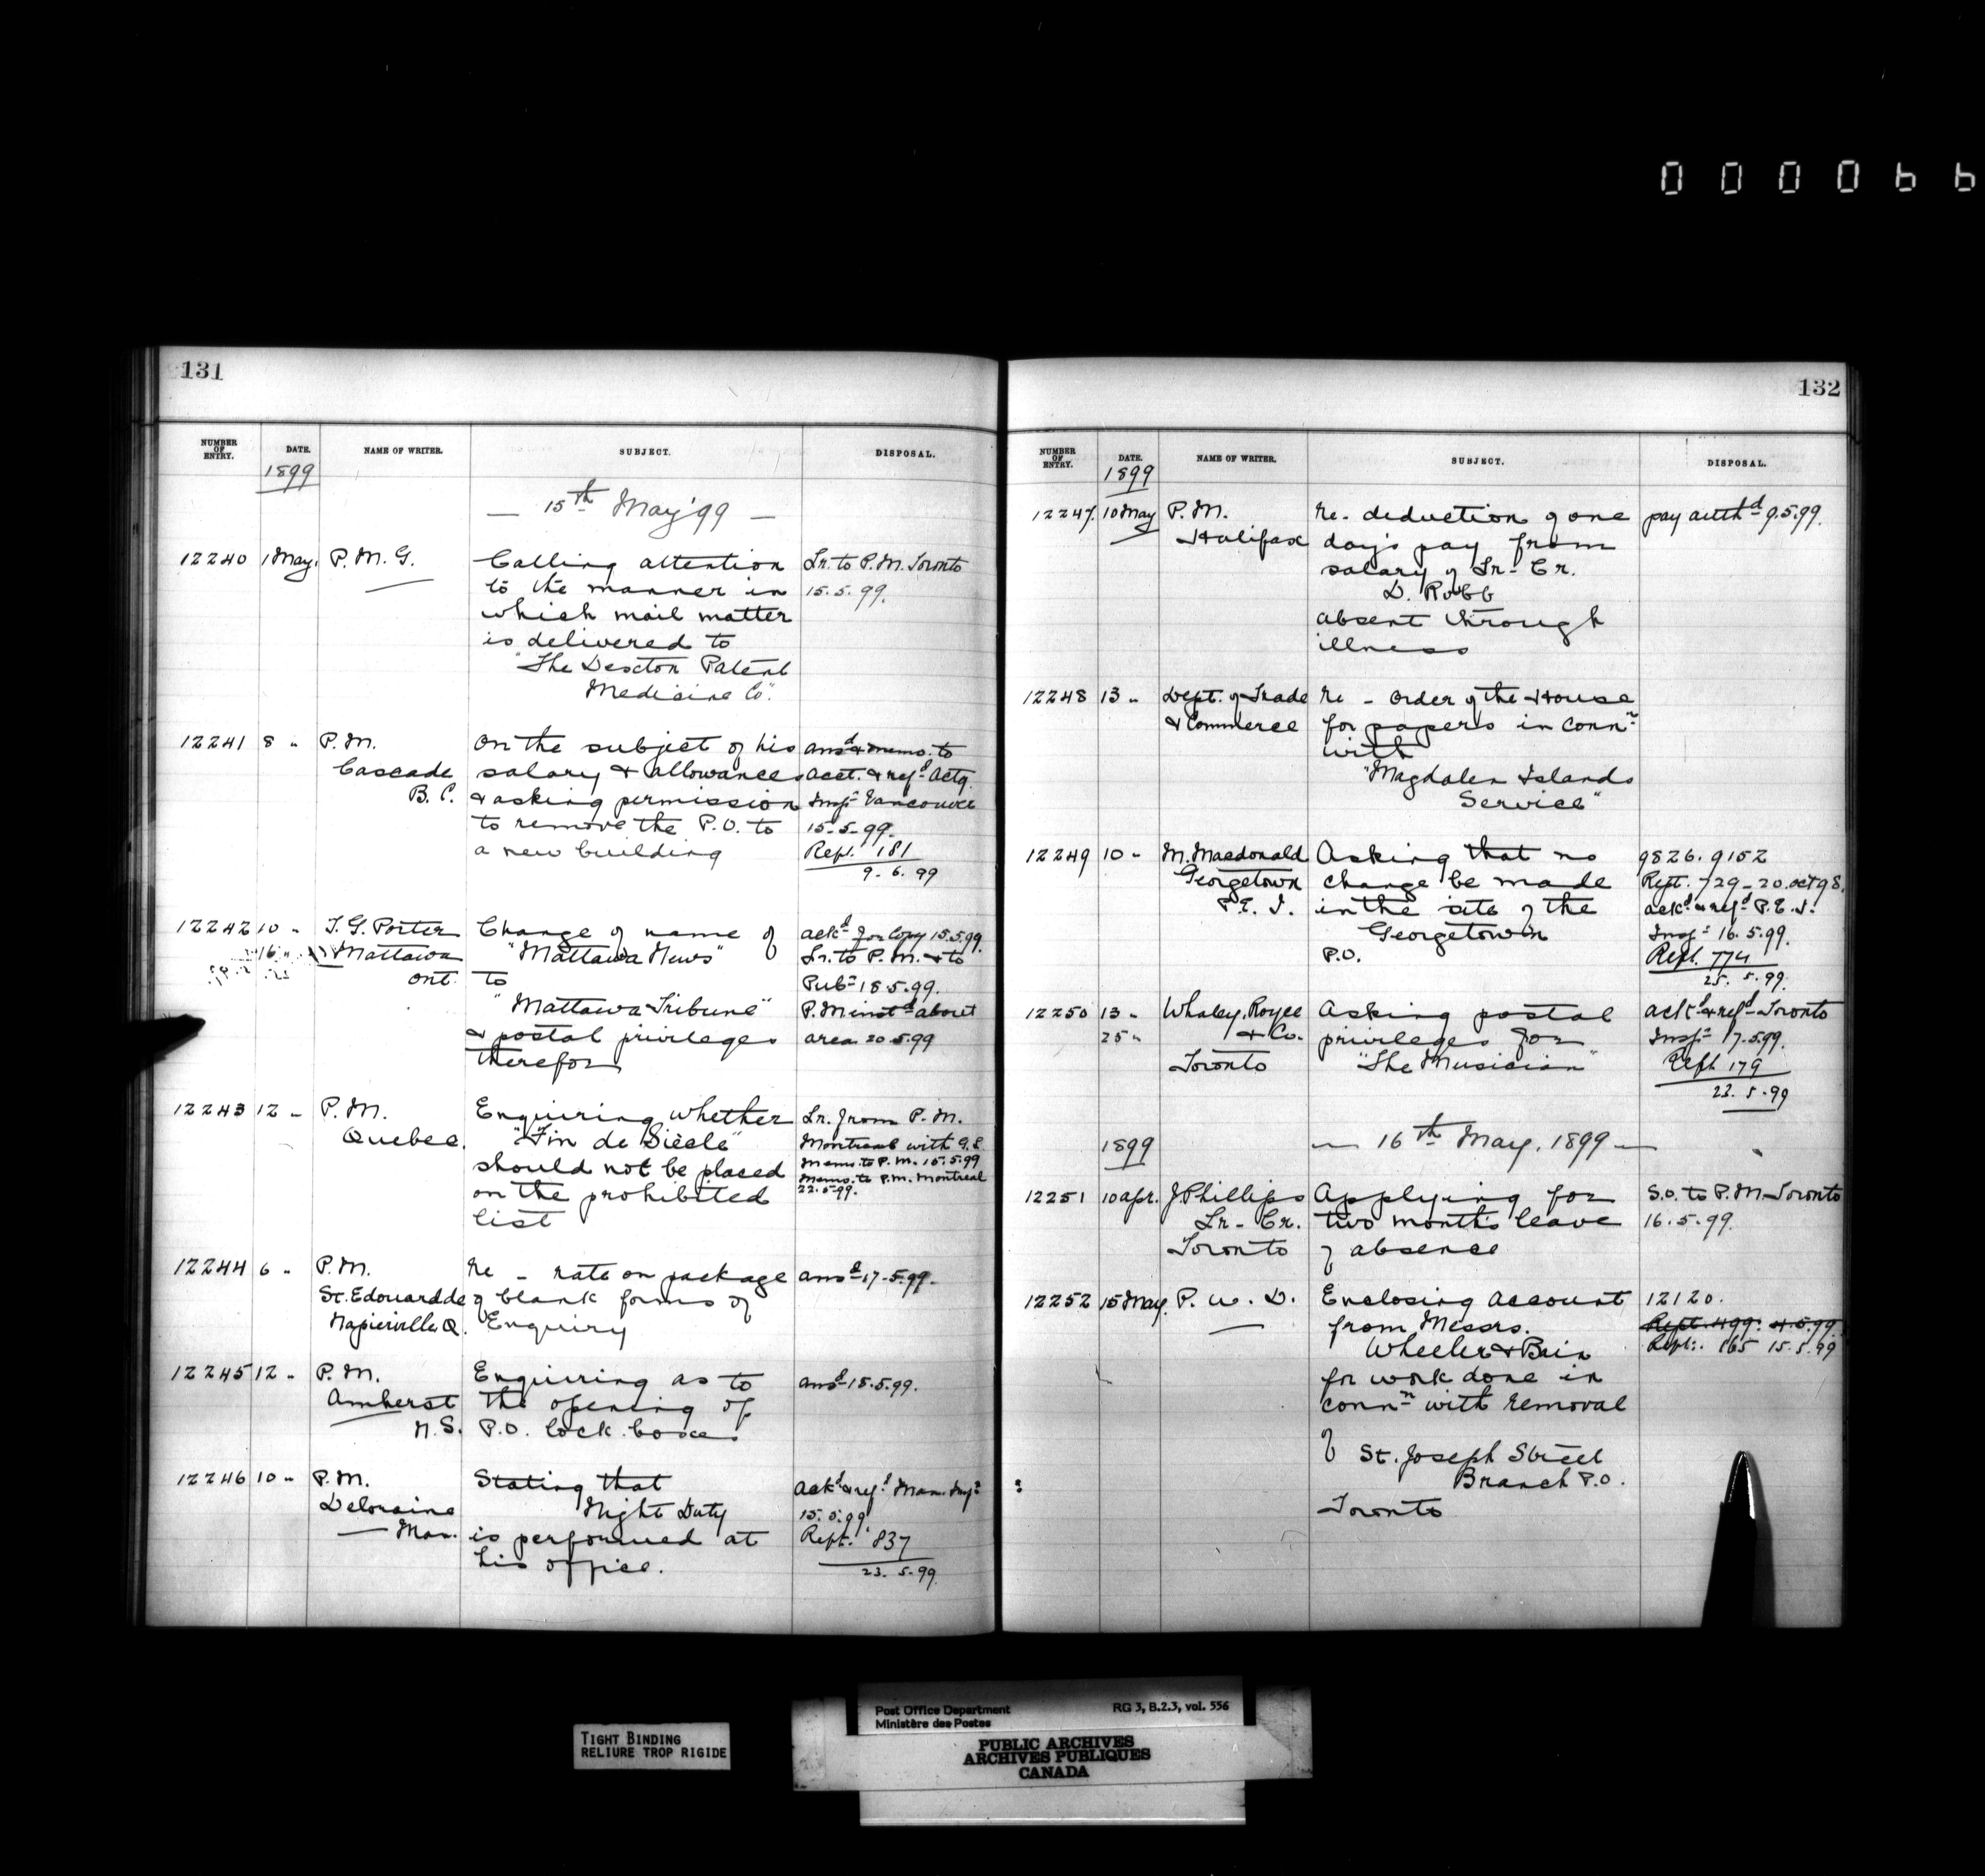 000066
131
NUMBER OF ENTRY. DATE. NAME OF WRITER. SUBJECT. DISPOSAL.
1899
— 15th May '99 —
12240 1 May. P. M. G. Calling attention Lr. to P.M. Toronto
to the manner in 15.5.99.
which mail matter
is delivered to
"The Dexton Patent
Medicine Co".
12241 8 " P.M. On the subject of his ansd & memo. to
Cascade salary & allowances acct. & refd actg.
B.C. & asking permission Inspr Vancouver
to remove the P.O. to 15-5-99.
a new building Rept. 181
9. 6. 99
12242 10 " T. G. Porter Change of name of ackd for copy 15.5.99.
16 " Mattawa "Mattawa News" Lr. to P.M. & to
Ont. to Pubr 18.5.99.
"Mattawa Tribune" P.M. instd about
& postal privileges area 20.5.99
therefor
12243 12 " P.M. Enquiring whether Lr. from P.M.
Quebec. "Fin de Siècle" Montreal with G.S.
should not be placed Memo. to P.M. 15.5.99
on the prohibited Memo. to P.M. Montreal
list 22.5.99.
12244 6 " P.M. Re - rate on package ansd 17.5.99.
St. Edouard de of blank forms of
Napierville Q. Enquiry
12245 12 " P.M. Enquiring as to ansd 15.5.99.
Amherst the opening of
N.S. P.O. lock boxes
12246 10 " P.M. Stating that ackd & refd Man. Inspr
Deloraine Night Duty 15.5.99
Man. is performed at Rept. 837
his office. 23. 5. 99.
132
NUMBER OF ENTRY. DATE. NAME OF WRITER. SUBJECT. DISPOSAL.
1899
12247. 10 May P.M. Re- deduction of one pay authd 9.5.99.
Halifax day's pay from
salary of Lr- Cr.
D. Robb
absent through
illness
12248 13 " Dept. of Trade Re - Order of the House
& Commerce for papers in connn
with
"Magdalen Islands
Service"
12249 10 " M. Macdonald Asking that no 9826. 9152
Georgetown change be made Rept. 729 - 20. Oct 98.
P.E.I. in the site of the ackd & refd P.E.I.
Georgetown Inspr 16.5.99.
P.O. Rept. 774
25. 5. 99.
12250 13 " Whaley, Royce Asking postal ackd & refd Toronto
25 " & Co. privileges for Inspr 17.5.99.
Toronto "The Musician" Rept 179
23. 5. 99
1899 — 16th May, 1899 —
12251 10 apr. J Phillips Applying for S.O. to P.M. Toronto
Lr- Cr. two months leave 16.5.99.
Toronto of absence
12252 15 May. P. W. D. Enclosing account 12120.
from Messrs. Rept. 499. 4.5.99
Wheeler & Bain Rept. 865 15.5.99
for work done in
connn with removal
of St. Joseph Street
Branch P.O.
Toronto
TIGHT BINDING
RELIURE TROP RIGIDE
Post Office Department RG 3, B.2.3, vol. 556
Ministère des Postes
PUBLIC ARCHIVES
ARCHIVES PUBLIQUES
CANADA